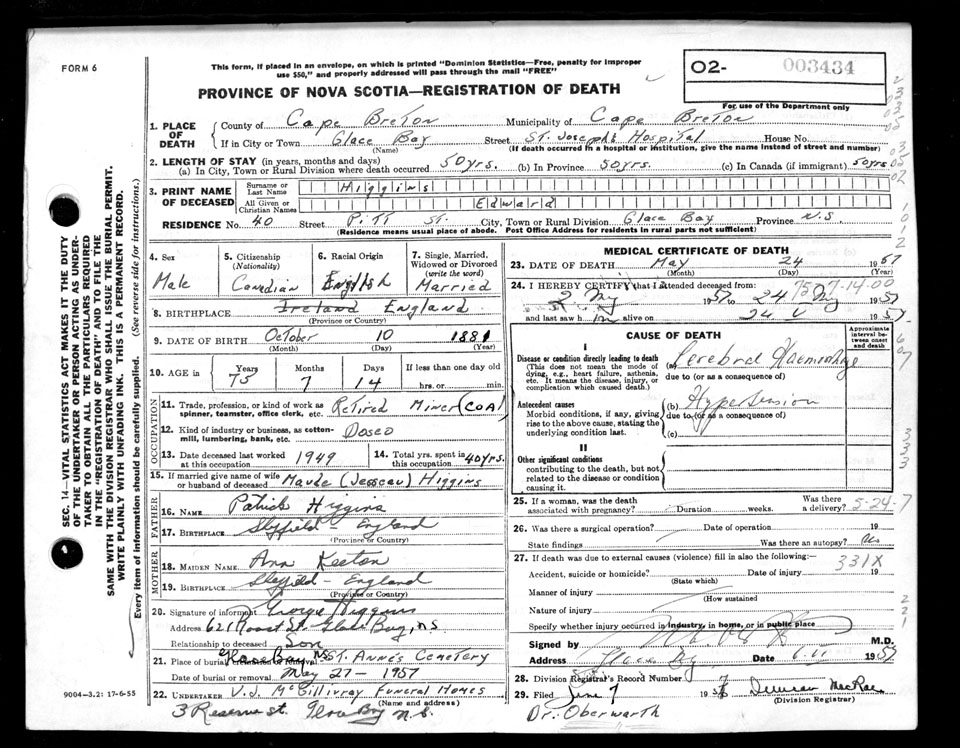 FORM 6
This form, if placed in an envelope, on which is printed "Dominion Statistics—Free, penalty for improper
use $50," and properly addressed will pass through the mail "FREE"
O2- 003434
For use of the Department only
PROVINCE OF NOVA SCOTIA—REGISTRATION OF DEATH
1. PLACE OF DEATH
County of Cape Breton Municipality of Cape Breton
If in City or Town Glace Bay Street St. Joseph's Hospital House No.
(Name) (If death occurred in a hospital or institution, give the name instead of street and number)
2. LENGTH OF STAY (in years, months and days)
(a) In City, Town or Rural Division where death occurred 50 yrs. (b) In Province 50 yrs. (c) In Canada (if immigrant) 50 yrs
3. PRINT NAME OF DECEASED
Surname or Last Name Higgins
All Given or Christian Names Edward
RESIDENCE No. 40 Street Pitt St. City, Town or Rural Division Glace Bay Province N.S.
(Residence means usual place of abode. Post Office Address for residents in rural parts not sufficient)
4. Sex Male
5. Citizenship (Nationality) Canadian
6. Racial Origin English
7. Single, Married, Widowed or Divorced (write the word) Married
8. BIRTHPLACE Ireland England
(Province or Country)
9. DATE OF BIRTH October 10 1881
(Month) (Day) (Year)
10. AGE in Years 75 Months 7 Days 14 If less than one day old
hrs. or min.
OCCUPATION
11. Trade, profession, or kind of work as spinner, teamster, office clerk, etc. Retired Miner (COAL)
12. Kind of industry or business, as cotton-mill, lumbering, bank, etc. Dosco
13. Date deceased last worked at this occupation 1949
14. Total yrs. spent in this occupation 40 yrs.
15. If married give name of wife or husband of deceased Maude Higgins
FATHER
16. Name Patrick Higgins
17. Birthplace England
(Province or Country)
MOTHER
18. MAIDEN NAME Ann Keeton
19. BIRTHPLACE England
(Province or Country)
20. Signature of informant George Higgins
Address 621 St. Glace Bay, N.S
Relationship to deceased Son
21. Place of burial cremation or removal Glace Bay NS St. Anne's Cemetery
Date of burial or removal May 27 - 1957
22. UNDERTAKER V.J. McGillivray Funeral Homes
(Name and address)
3 Reserve st. Glace Bay N.S.
9004—3.2: 17-6-55
MEDICAL CERTIFICATE OF DEATH
23. DATE OF DEATH May 24 1957
(Month) (Day) (Year)
24. I HEREBY CERTIFY that I attended deceased from:
2 My 1957 to 24 My 1957
and last saw him alive on 24 1957
CAUSE OF DEATH
Approximate interval between onset and death
I
Disease or condition directly leading to death
(This does not mean the mode of dying, e.g., heart failure, asthenia, etc. It means the disease, injury, or complication which caused death.)
(a) Cerebral Haemorrhage
due to (or as a consequence of)
Antecedent causes
Morbid conditions, if any, giving rise to the above cause, stating the underlying condition last.
(b) Hypertension
due to (or as a consequence of)
(c)
II
Other significant conditions
contributing to the death, but not related to the disease or condition causing it.
25. If a woman, was the death associated with pregnancy? Duration weeks. Was there a delivery? 5-24-7
26. Was there a surgical operation? Date of operation 19
State findings Was there an autopsy? No
27. If death was due to external causes (violence) fill in also the following:—
331X
Accident, suicide or homicide? Date of injury 19
(State which)
Manner of injury
(How sustained
Nature of injury
Specify whether injury occurred in industry, in home, or in public place
Signed by M.D.
Address Glace Bay Date 1957
28. Division Registrar's Record Number
29. Filed June 7 1957 Duncan MacRae
(Division Registrar)
Dr. Oberwarth
SEC. 14—VITAL STATISTICS ACT MAKES IT THE DUTY
OF THE UNDERTAKER OR PERSON ACTING AS UNDER-
TAKER TO OBTAIN ALL THE PARTICULARS REQUIRED
IN THE "REGISTRATION OF DEATH" AND TO FILE THE
SAME WITH THE DIVISION REGISTRAR WHO SHALL ISSUE THE BURIAL PERMIT.
WRITE PLAINLY WITH UNFADING INK. THIS IS A PERMANENT RECORD.
Every item of information should be carefully supplied. (See reverse side for instructions.)